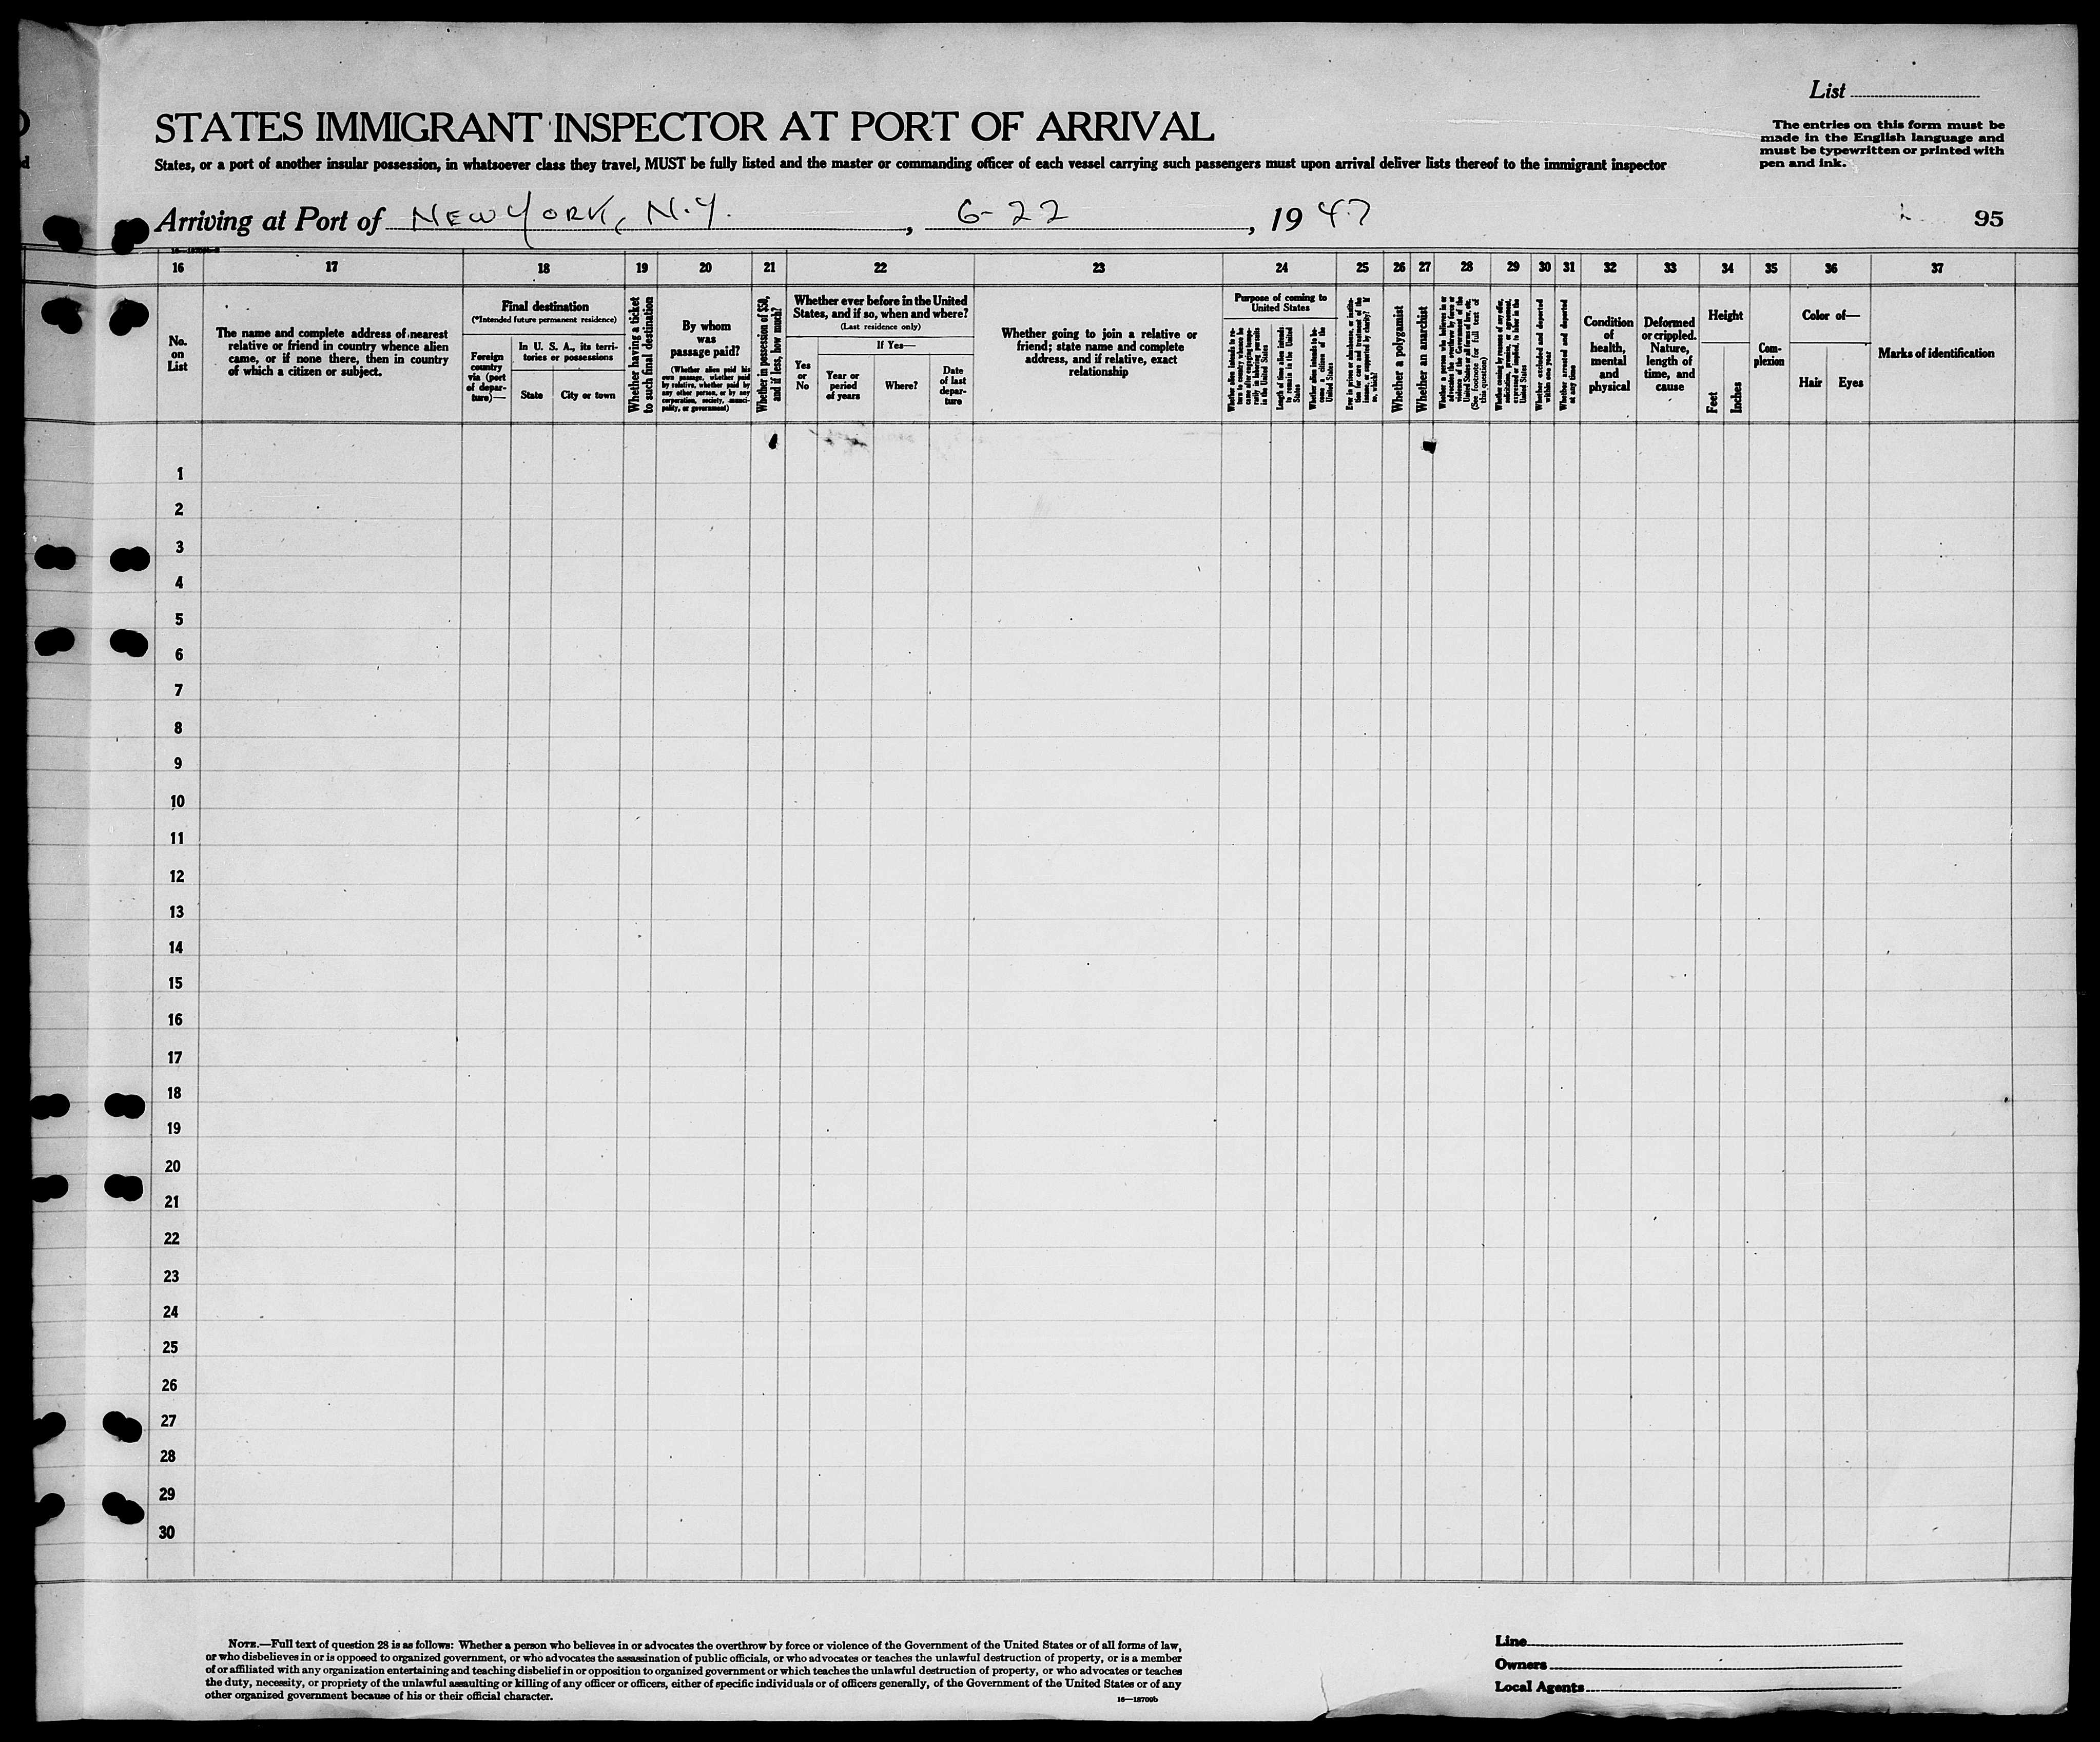 List
STATES IMMIGRANT INSPECTOR AT PORT OF ARRIVAL
The entries on this form must be
made in the English language and
must be typewritten or printed with
pen and ink.
States, or a port of another insular possession, in whatsoever class they travel, MUST be fully listed and the master or commanding officer of each vessel carrying such passengers must upon arrival deliver lists thereof to the immigrant inspector
Arriving at Port of NEW YORK, N.Y. , 6-22 , 19 47
95
16 17 18 19 20 21 22 23 24 25 26 27 28 29 30 31 32 33 34 35 36 37
No.
on
List
The name and complete address of nearest
relative or friend in country whence alien
came, or if none there, then in country
of which a citizen or subject.
Final destination
(*Intended future permanent residence)
Foreign
country
via (port
of depar-
ture)—
In U. S. A., its terri-
tories or possessions
State
City or town
Whether having a ticket
to such final destination
By whom
was
passage paid?
(Whether alien paid his
own passage, whether paid
by relative, whether paid by
any other person, or by any
corporation, society, munici-
pality, or government)
Whether in possession of $50,
and if less, how much?
Whether ever before in the United
States, and if so, when and where?
(Last residence only)
Yes
or
No
If Yes—
Year or
period
of years
Where?
Date
of last
depar-
ture
Whether going to join a relative or
friend; state name and complete
address, and if relative, exact
relationship
Purpose of coming to
United States
Whether alien intends to re-
turn to country whence he
came after engaging tempo-
rarily in laboring pursuits
in the United States
Length of time alien intends
to remain in the United
States
Whether alien intends to be-
come a citizen of the
United States
Ever in prison or almshouse, or institu-
tion for care and treatment of the
insane, or supported by charity? If
so, which?
Whether a polygamist
Whether an anarchist
Whether a person who believes in or
advocates the overthrow by force or
violence of the Government of the
United States or all forms of law, etc.
(See footnote for full text of
this question)
Whether coming by reason of any offer,
solicitation, promise, or agreement,
expressed or implied, to labor in the
United States
Whether excluded and deported
within one year
Whether arrested and deported
at any time
Condition
of
health,
mental
and
physical
Deformed
or crippled.
Nature,
length of
time, and
cause
Height
Feet
Inches
Com-
plexion
Color of—
Hair
Eyes
Marks of identification
1
2
3
4
5
6
7
8
9
10
11
12
13
14
15
16
17
18
19
20
21
22
23
24
25
26
27
28
29
30
NOTE.—Full text of question 28 is as follows: Whether a person who believes in or advocates the overthrow by force or violence of the Government of the United States or of all forms of law,
or who disbelieves in or is opposed to organized government, or who advocates the assassination of public officials, or who advocates or teaches the unlawful destruction of property, or is a member
of or affiliated with any organization entertaining and teaching disbelief in or opposition to organized government or which teaches the unlawful destruction of property, or who advocates or teaches
the duty, necessity, or propriety of the unlawful assaulting or killing of any officer or officers, either of specific individuals or of officers generally, of the Government of the United States or of any
other organized government because of his or their official character.
16—18709b
Line
Owners
Local Agents